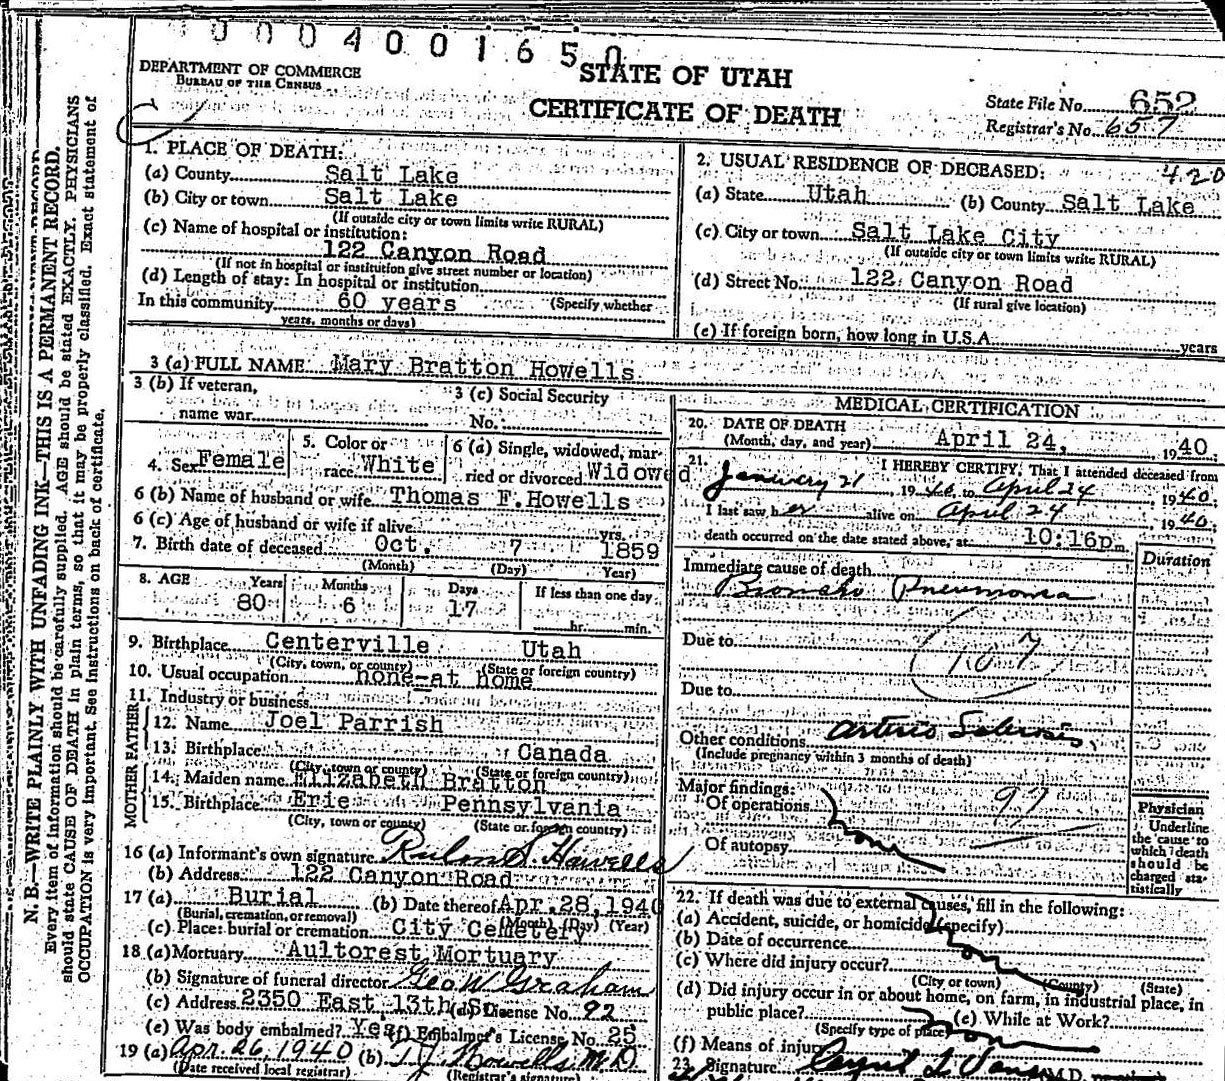 0004001650
DEPARTMENT OF COMMERCE
BUREAU OF THE CENSUS
STATE OF UTAH
CERTIFICATE OF DEATH
State File No. 652
Registrar's No. 657
N. B.—WRITE PLAINLY WITH UNFADING INK—THIS IS A PERMANENT RECORD.
Every item of information should be carefully supplied. AGE should be stated EXACTLY. PHYSICIANS
should state CAUSE OF DEATH in plain terms, so that it may be properly classified. Exact statement of
OCCUPATION is very important. See instructions on back of certificate.
1. PLACE OF DEATH:
(a) County Salt Lake
(b) City or town Salt Lake
(If outside city or town limits write RURAL)
(c) Name of hospital or institution:
122 Canyon Road
(If not in hospital or institution give street number or location)
(d) Length of stay: In hospital or institution
In this community 60 years (Specify whether
years, months or days)
2. USUAL RESIDENCE OF DECEASED: 420
(a) State Utah (b) County Salt Lake
(c) City or town Salt Lake City
(If outside city or town limits write RURAL)
(d) Street No. 122 Canyon Road
(If rural give location)
(e) If foreign born, how long in U.S.A. years
3 (a) FULL NAME Mary Bratton Howells
3 (b) If veteran, 3 (c) Social Security
name war No.
4. Sex Female 5. Color or race White 6 (a) Single, widowed, married or divorced Widowed
6 (b) Name of husband or wife Thomas F. Howells
6 (c) Age of husband or wife if alive yrs.
7. Birth date of deceased Oct. 7 1859
(Month) (Day) Year)
8. AGE Years Months Days If less than one day
80 6 17 hr. min.
9. Birthplace Centerville Utah
(City, town, or county) (State or foreign country)
10. Usual occupation none-at home
11. Industry or business
FATHER
12. Name Joel Parrish
13. Birthplace Canada
(City, town or county) (State or foreign country)
MOTHER
14. Maiden name Elizabeth Bratton
15. Birthplace Erie Pennsylvania
(City, town or county) (State or foreign country)
16 (a) Informant's own signature S. Howells
(b) Address 122 Canyon Road
17 (a) Burial (b) Date thereof Apr. 28, 1940
(Burial, cremation, or removal) (Month) (Day) (Year)
(c) Place: burial or cremation City Cemetery
18 (a) Mortuary Aultorest Mortuary
(b) Signature of funeral director Geo W Graham
(c) Address 2350 East 13th So. (d) License No. 92
(e) Was body embalmed? Yes (f) Embalmer's License No. 25
19 (a) Apr. 26, 1940 (b) T. J. Howells M.D.
(Date received local registrar) (Registrar's signature)
MEDICAL CERTIFICATION
20. DATE OF DEATH
(Month, day, and year) April 24, 1940.
21. I HEREBY CERTIFY, That I attended deceased from
Janivery 21, 1940, to April 24 1940.
I last saw her alive on April 24 1940.
death occurred on the date stated above, at 10:16p m.
Duration
Immediate cause of death
Broncho Pneumonia
Due to 107
Due to
Other conditions Arterio Sclerosis.
(Include pregnancy within 3 months of death)
Major findings: 97
Of operations none
Of autopsy
Physician
Underline
the cause to
which death
should be
charged sta-
tistically
22. If death was due to external causes, fill in the following:
(a) Accident, suicide, or homicide (specify)
(b) Date of occurrence none
(c) Where did injury occur?
(City or town) (County) (State)
(d) Did injury occur in or about home, on farm, in industrial place, in
public place? (e) While at Work?
(Specify type of place)
(f) Means of injury none
23. Signature M.D.